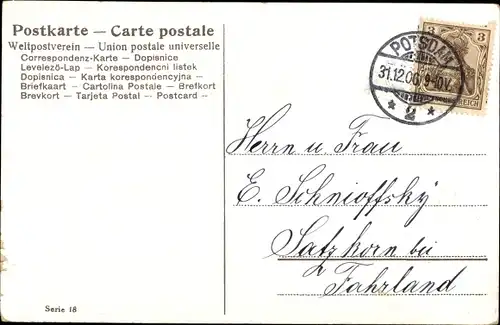 Postkarte — Carte postale
Weltpostverein — Union postale universelle
Correspondenz-Karte — Dopisnice
Levelező-Lap — Korespondencni listek
Dopisnica — Karta korespondencyjna —
Briefkaart — Cartolina Postale — Brefkort
Brevkort — Tarjeta Postal — Postcard —
3 3
POTSDAM
31.12.06. 9-10V.
* 2 *
REICH
Herrn u Frau
E. Schnioffsky
Satzkorn bei
Fahrland
Serie 18